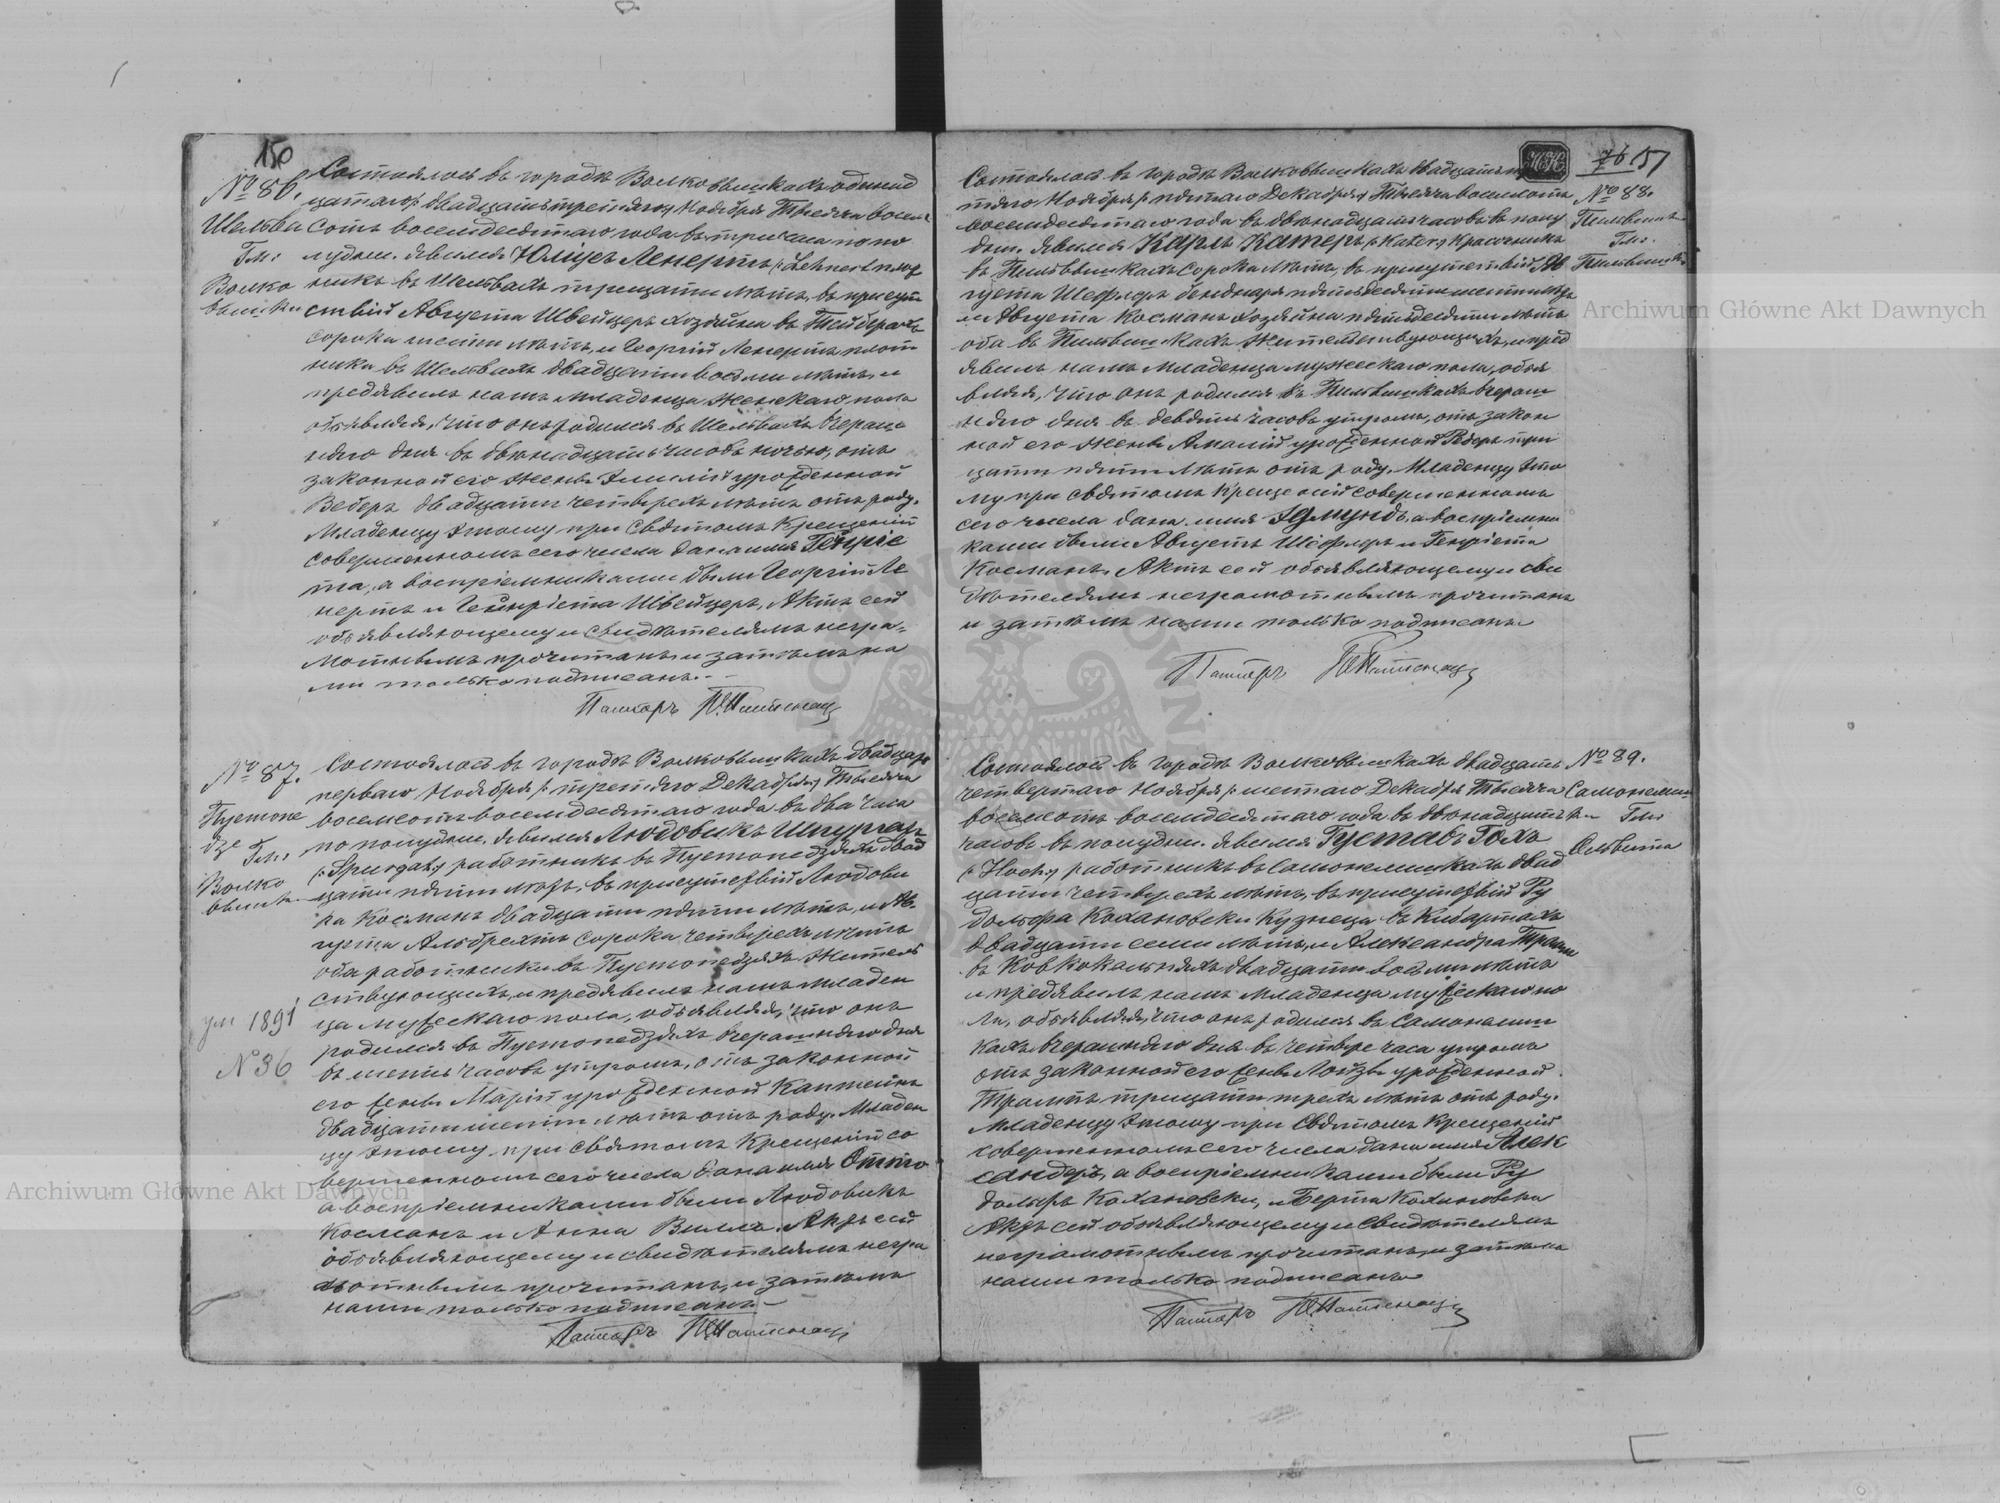 150
№ 86.
Шельви
Гм:
Волко
вышки
Состоялось въ городѣ Волковышкахъ одиннад
цатаго /: двадцать третьяго Ноября Тысяча восемь
сотъ восемьдесятаго года въ три часа по по
лудни. Явился Юліусъ Ленертъ /: Lehnert плот
никъ въ Шельвахъ тридцати лѣтъ, въ присут
ствіи Августа Швейцеръ хозяина въ
сорока шести лѣтъ, и Георгій Ленертъ плот
ника въ Шельвахъ двадцати восьми лѣтъ, и
предъявилъ намъ младенца женскаго пола
объявляя, что онъ родился въ Шельвахъ вчераш
няго дня въ двѣнадцать часовъ ночью, отъ
законной его жены Эмиліи урожденной
Веберъ двадцати четырехъ лѣтъ отъ роду.
Младенцу этому при Святомъ Крещеніи
совершенномъ сего числа дано имя Генріе
та, а воспріемниками были Георгій Ле
нертъ и Генріета Швейцеръ, Актъ сей
объявляющему и свидѣтелямъ негра-
мотнымъ прочитанъ и затѣмъ на
ми только подписанъ.
Пасторъ
№ 87.
Пустопе
дзе Гм:
Волко
вышки
ум 1891
№ 36
Состоялось въ городѣ Волковышкахъ двадцать
перваго Ноября /: третьяго Декабря :/ Тысяча
восемсотъ восемьдесятаго года въ два часа
по полудни. Явился Людовикъ Шпургатъ
/: Spurgat :/ работникъ въ Пустопедзяхъ двад
цати пяти лѣтъ, въ присутствіи Людови
ка Косманъ двадцати пяти лѣтъ, и Ав-
густа Альбрехтъ сорока четырехъ лѣтъ
оба работники въ Пустопедзяхъ житель
ствующихъ, и предъявилъ намъ младен
ца мужескаго пола, объявляя, что онъ
родился въ Пустопедзяхъ вчерашняго дня
въ шесть часовъ утромъ, отъ законной
его жены Маріи урожденной Каптейнъ
двадцати шести лѣтъ отъ роду. Младен
цу этому при Святомъ Крещеніи со
вершенномъ сего числа дано имя Отто
а воспріемниками были Людовикъ
Косманъ и Анна Вилль. Актъ сей
объявляющему и свидѣтелямъ негра
мотнымъ прочитанъ, и затѣмъ
нами только подписанъ.
Пасторъ
76 151
№ 88.
Пильвиш
Гм:
Пильвишки
Состоялось въ городѣ Волковышкахъ двадцать
тьяго Ноября /: пятаго Декабря :/ Тысяча восемсотъ
восемьдесятаго года въ двѣнадцать часовъ въ полу
дни. Явился Карлъ Катеръ /: Kater :/ красочникъ
въ Пильвишкахъ сорока лѣтъ, въ присутствіи Ав
густа Шефлеръ бенднаря пятьдесяти шести лѣтъ
и Августа Косманъ хозяина пятидесяти лѣтъ
оба въ Пильвишкахъ жительствующихъ, и пред
явилъ намъ младенца мужескаго пола, объя
вляя, что онъ родился въ Пильвишкахъ вчераш
няго дня въ девять часовъ утромъ, отъ закон
ной его жены Амаліи урожденной Реберъ три
цати пяти лѣтъ отъ роду. Младенцу это
му при Святомъ Крещеніи совершенномъ
сего числа дано имя Эдмундъ, а воспріемни
ками были Августъ Шефлеръ и Генріета
Косманъ. Актъ сей объявляющему и сви
дѣтелямъ неграмотнымъ прочитанъ
и затѣмъ нами только подписанъ.
Пасторъ
№ 89.
Гм:
Ольвита
Состоялось въ городѣ Волковышкахъ двадцать
четвертаго Ноября /: шестаго Декабря Тысяча
восемсотъ восемьдесятаго года въ двѣнадцать
часовъ въ полудни. Явился Густавъ Гохъ
/: Hoch :/ работникъ въ Самонелишкахъ двад
цати четырехъ лѣтъ, въ присутствіи Ру
дольфа Кохановски кузнеца въ Кибартахъ
двадцати семи лѣтъ, и Александра Трамтъ
въ Ковкокальняхъ двадцати восьми лѣтъ
и предъявилъ намъ младенца мужескаго по
ла, объявляя, что онъ родился въ Самонелиш
кахъ вчерашняго дня въ четыре часа утромъ
отъ законной его жены Лойзы урожденной
Трамтъ тридцати трехъ лѣтъ отъ роду.
Младенцу этому при Святомъ Крещеніи
совершенномъ сего числа дано имя Алек
сандеръ, а воспріемниками были Ру
дольфъ Кохановски, и Берта Кохановска
Актъ сей объявляющему и свидѣтелямъ
неграмотнымъ прочитанъ, и затѣмъ
нами только подписанъ
Пасторъ
Archiwum Główne Akt Dawnych
Archiwum Główne Akt Dawnych